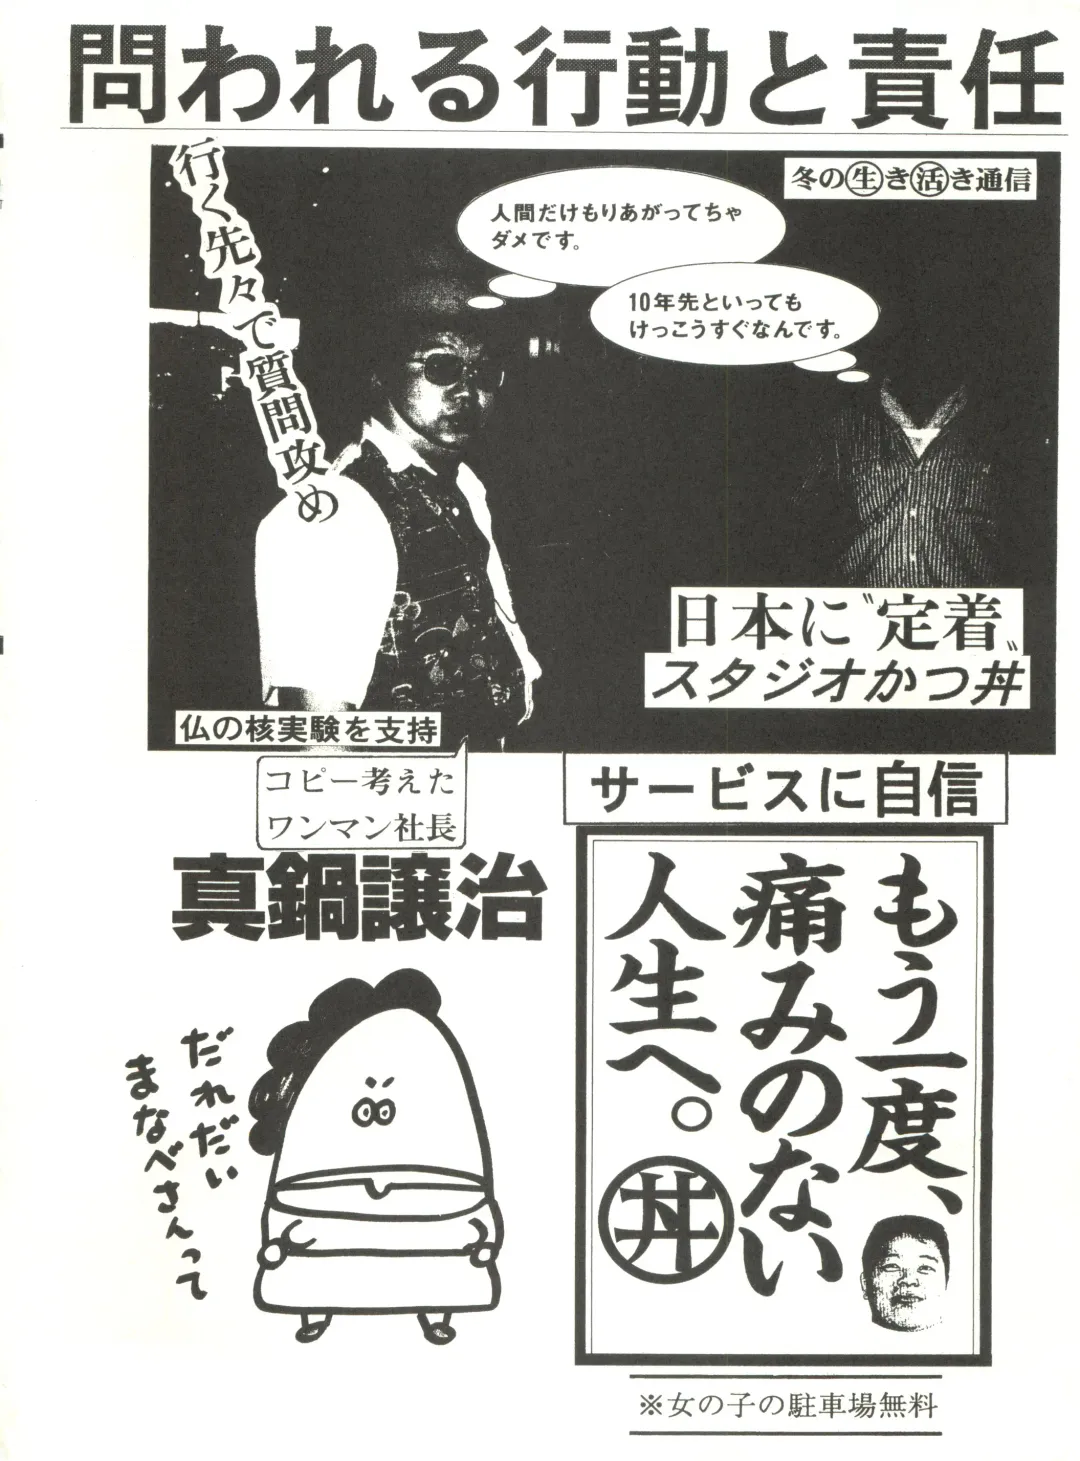 問われる行動と責任
行く先々で質問攻め
冬の㊌き㊋き通信
人間だけもりあがってちゃ
ダメです。
10年先といっても
けっこうすぐなんです。
日本に〝定着〟
スタジオかつ丼
仏の核実験を支持
コピー考えた
ワンマン社長
真鍋譲治
サービスに自信
もう一度、
痛みのない
人生へ。
丼
だれだい
まなべさんって
※女の子の駐車場無料